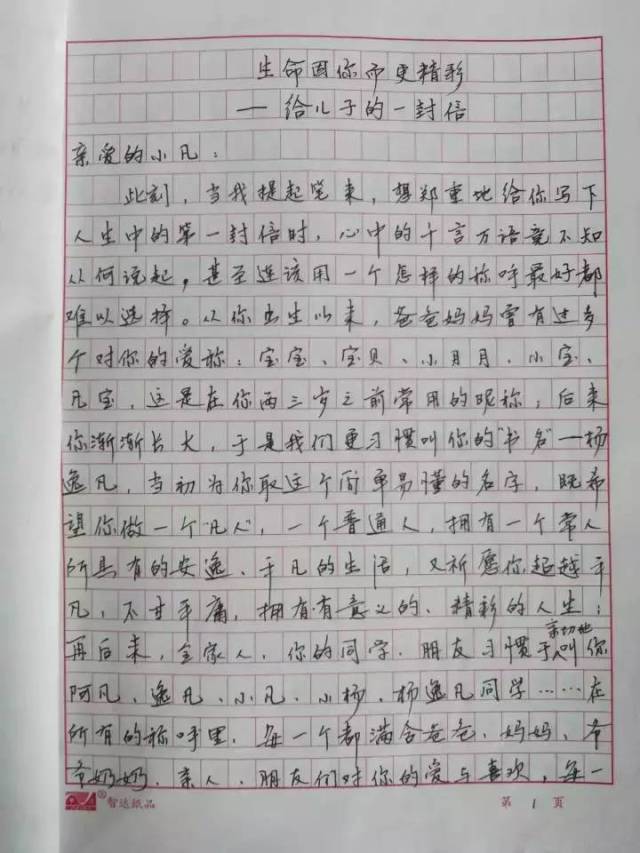 生命因你而更精彩
—给儿子的一封信
亲爱的小凡：
此刻，当我提起笔来，想郑重地给你写下
人生中的第一封信时，心中的千言万语竟不知
从何说起，甚至连该用一个怎样的称呼最好都
难以选择。从你出生以来，爸爸妈妈曾有过多
个对你的爱称：宝宝、宝贝、小月月、小宝、
凡宝，这是在你两三岁之前常用的昵称；后来
你渐渐长大，于是我们更习惯叫你的“书名”—杨
逸凡，当初为你取这个简单易懂的名字，既希
望你做一个“凡人”，一个普通人，拥有一个常人
所具有的安逸、平凡的生活，又祈愿你超越平
凡，不甘平庸，拥有有意义的、精彩的人生；
再后来，全家人、你的同学、朋友习惯于亲切地叫你
阿凡、逸凡、小凡、小杨、杨逸凡同学……在
所有的称呼里，每一个都满含爸爸、妈妈、爷
爷奶奶、亲人、朋友们对你的爱与喜欢，每一
智达纸品
第 1 页